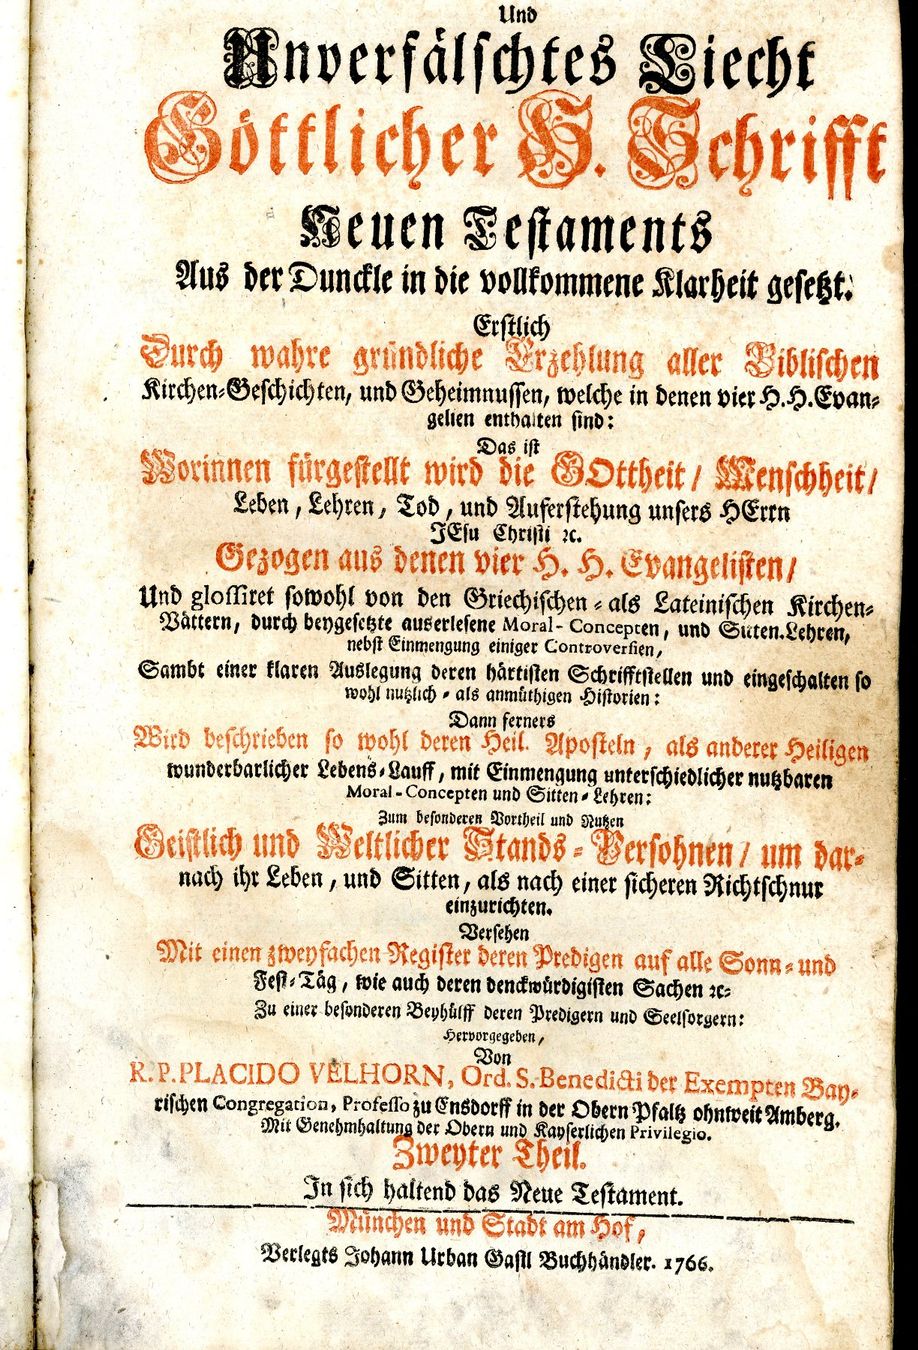 Und
Unverfälschtes Liecht
Göttlicher H. Schrifft
Neuen Testaments
Aus der Dunckle in die vollkommene Klarheit gesetzt.
Erstlich
Durch wahre gründliche Erzehlung aller Biblischen
Kirchen-Geschichten, und Geheimnussen, welche in denen vier H.H. Evan-
gelien enthalten sind:
Das ist
Worinnen fürgestellt wird die GOttheit / Menschheit /
Leben, Lehren, Tod, und Auferstehung unsers HErrn
JEsu Christi ꝛc.
Gezogen aus denen vier H. H. Evangelisten /
Und glossiret sowohl von den Griechischen - als Lateinischen Kirchen-
Vättern, durch beygesetzte auserlesene Moral-Concepten, und Sitten-Lehren,
nebst Einmengung einiger Controversien,
Sambt einer klaren Auslegung deren härtisten Schrifftstellen und eingeschalten so
wohl nutzlich - als anmüthigen Historien:
Dann ferners
Wird beschrieben so wohl deren Heil. Aposteln, als anderer Heiligen
wunderbarlicher Lebens-Lauff, mit Einmengung unterschiedlicher nutzbaren
Moral-Concepten und Sitten-Lehren:
Zum besonderen Vortheil und Nutzen
Geistlich und Weltlicher Stands-Persohnen / um dar-
nach ihr Leben, und Sitten, als nach einer sicheren Richtschnur
einzurichten.
Versehen
Mit einen zweyfachen Register deren Predigen auf alle Sonn- und
Fest-Täg, wie auch deren denckwürdigisten Sachen ꝛc-
Zu einer besonderen Beyhülff deren Predigern und Seelsorgern:
Hervorgegeben,
Von
R. P. PLACIDO VELHORN, Ord. S. Benedicti der Exempten Bay-
rischen Congregation, Professo zu Ensdorff in der Obern Pfaltz ohnweit Amberg.
Mit Genehmhaltung der Obern und Kayserlichen Privilegio.
Zweyter Theil.
In sich haltend das Neue Testament.
München und Stadt am Hof,
Verlegts Johann Urban Gastl Buchhändler. 1766.